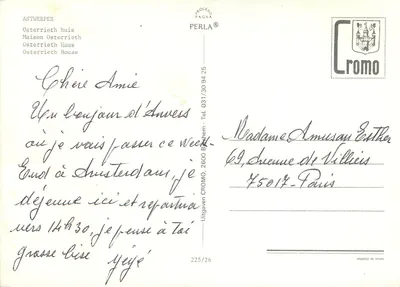 ANTWERPEN
Osterrieth huis
Maison Osterrieth
Osterrieth Haus
Osterrieth House
PERLA®
Cromo
Chère Amie
Un bonjour d'Anvers
où je vais passer ce Week-
End à Amsterdam, je
déjeune ici et repartirai
vers 14h30, je pense à toi
grosse bise yéyé
Uitgaven CROMO, 2600 Tel. 031/30 94 25
225/26
Madame Amusan Esther
69, Avenue de Villiers
75017 - Paris